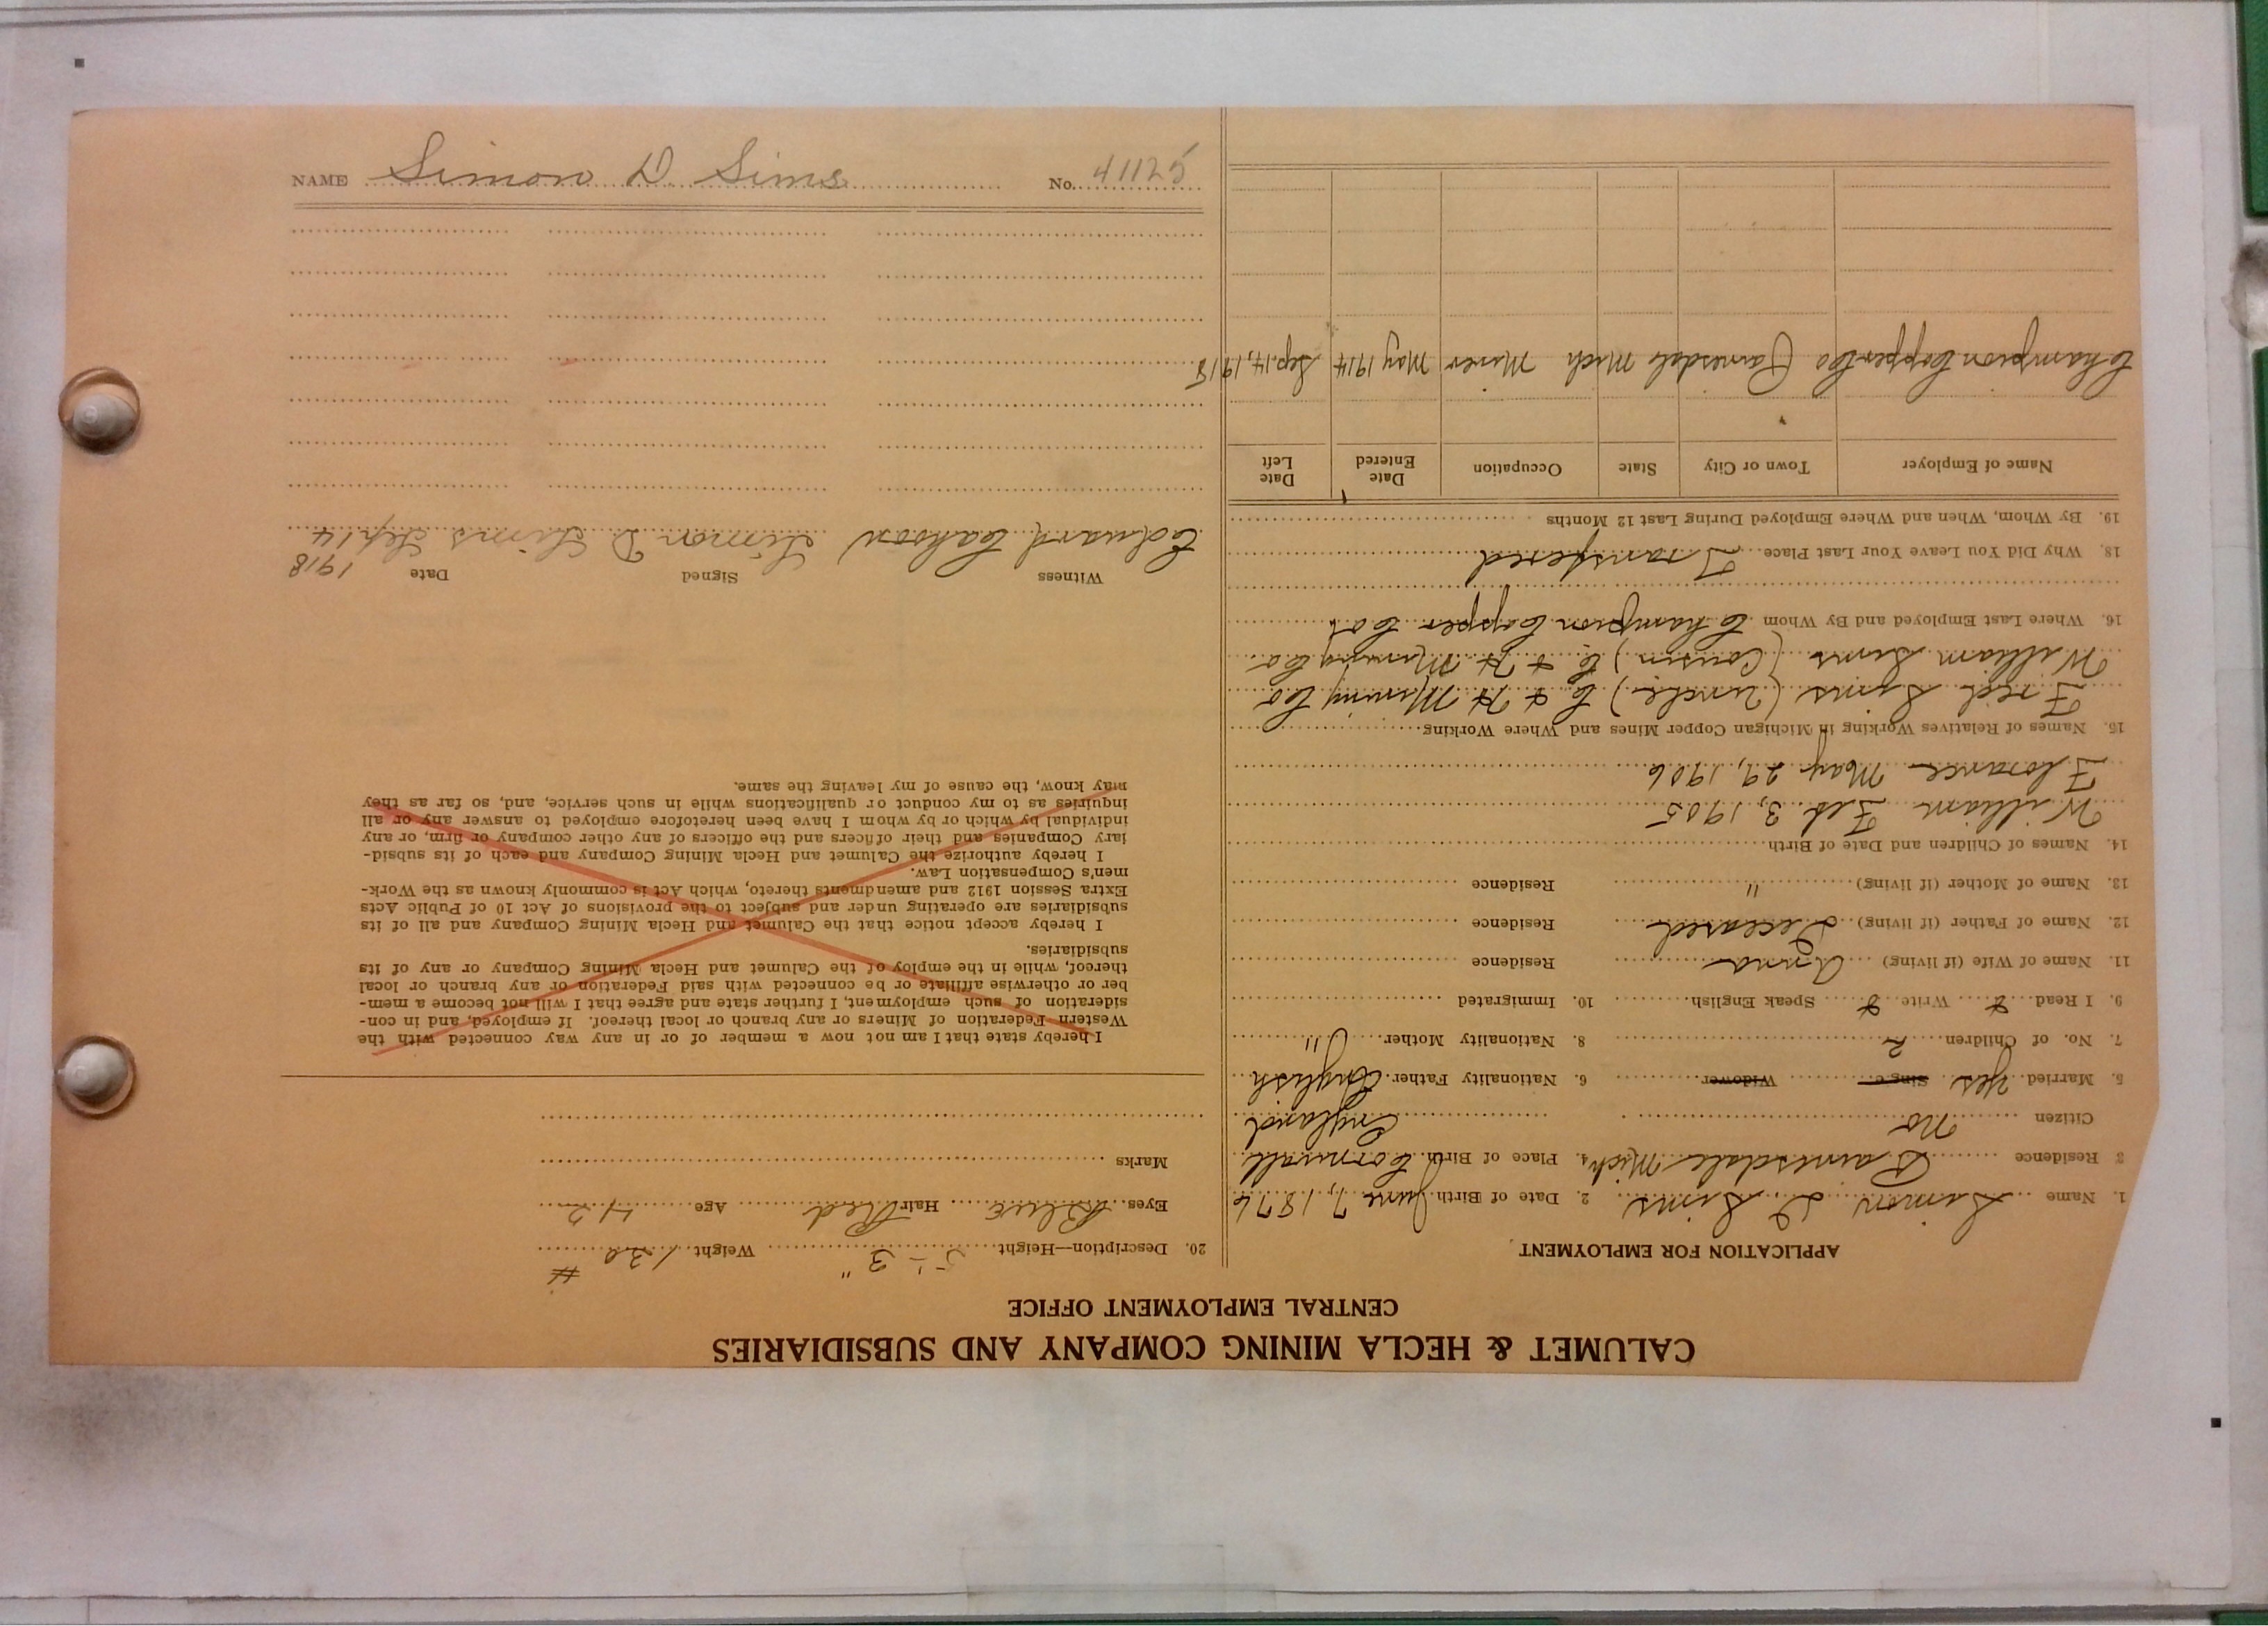 CALUMET & HECLA MINING COMPANY AND SUBSIDIARIES
CENTRAL EMPLOYMENT OFFICE
APPLICATION FOR EMPLOYMENT
1. Name Simon D. Sims 2. Date of Birth June 7, 1876
3 Residence Painesdale Mich 4. Place of Birth Cornwall
Citizen No England
5. Married yes Single Widower 6. Nationality Father English
7. No. of Children 2 8. Nationality Mother "
9. I Read Write Speak English 10. Immigrated
11. Name of Wife (if living) Anna Residence
12. Name of Father (if living) Deceased Residence
13. Name of Mother (if living) " Residence
14. Names of Children and Date of Birth
William Feb. 3, 1905
Florance May 29, 1906
15. Names of Relatives Working in Michigan Copper Mines and Where Working
Fred Sims (Uncle) C + H Mining Co
William Sims (Cousin) C + H Mining Co
16. Where Last Employed and By Whom Champion Copper Co.
18. Why Did You Leave Your Last Place Transfered
19. By Whom, When and Where Employed During Last 12 Months
Name of Employer Town or City State Occupation Date Entered Date Left
Champion Copper Co Painesdale Mich Miner May 1914 Sep. 14, 1918
20. Description—Height 5'- 3" Weight 130 #
Eyes Blue Hair Red Age 42
Marks
I hereby state that I am not now a member of or in any way connected with the
Western Federation of Miners or any branch or local thereof. If employed, and in con-
sideration of such employment, I further state and agree that I will not become a mem-
ber or otherwise affiliate or be connected with said Federation or any branch or local
thereof, while in the employ of the Calumet and Hecla Mining Company or any of its
subsidiaries.
I hereby accept notice that the Calumet and Hecla Mining Company and all of its
subsidiaries are operating under and subject to the provisions of Act 10 of Public Acts
Extra Session 1912 and amendments thereto, which Act is commonly known as the Work-
men's Compensation Law.
I hereby authorize the Calumet and Hecla Mining Company and each of its subsid-
iary Companies and their officers and the officers of any other company or firm, or any
individual by which or by whom I have been heretofore employed to answer any or all
inquiries as to my conduct or qualifications while in such service, and, so far as they
may know, the cause of my leaving the same.
Witness Signed Date 1918
Edward Cahoon Simon D. Sims Sep 14
NAME Simon D. Sims No. 41125